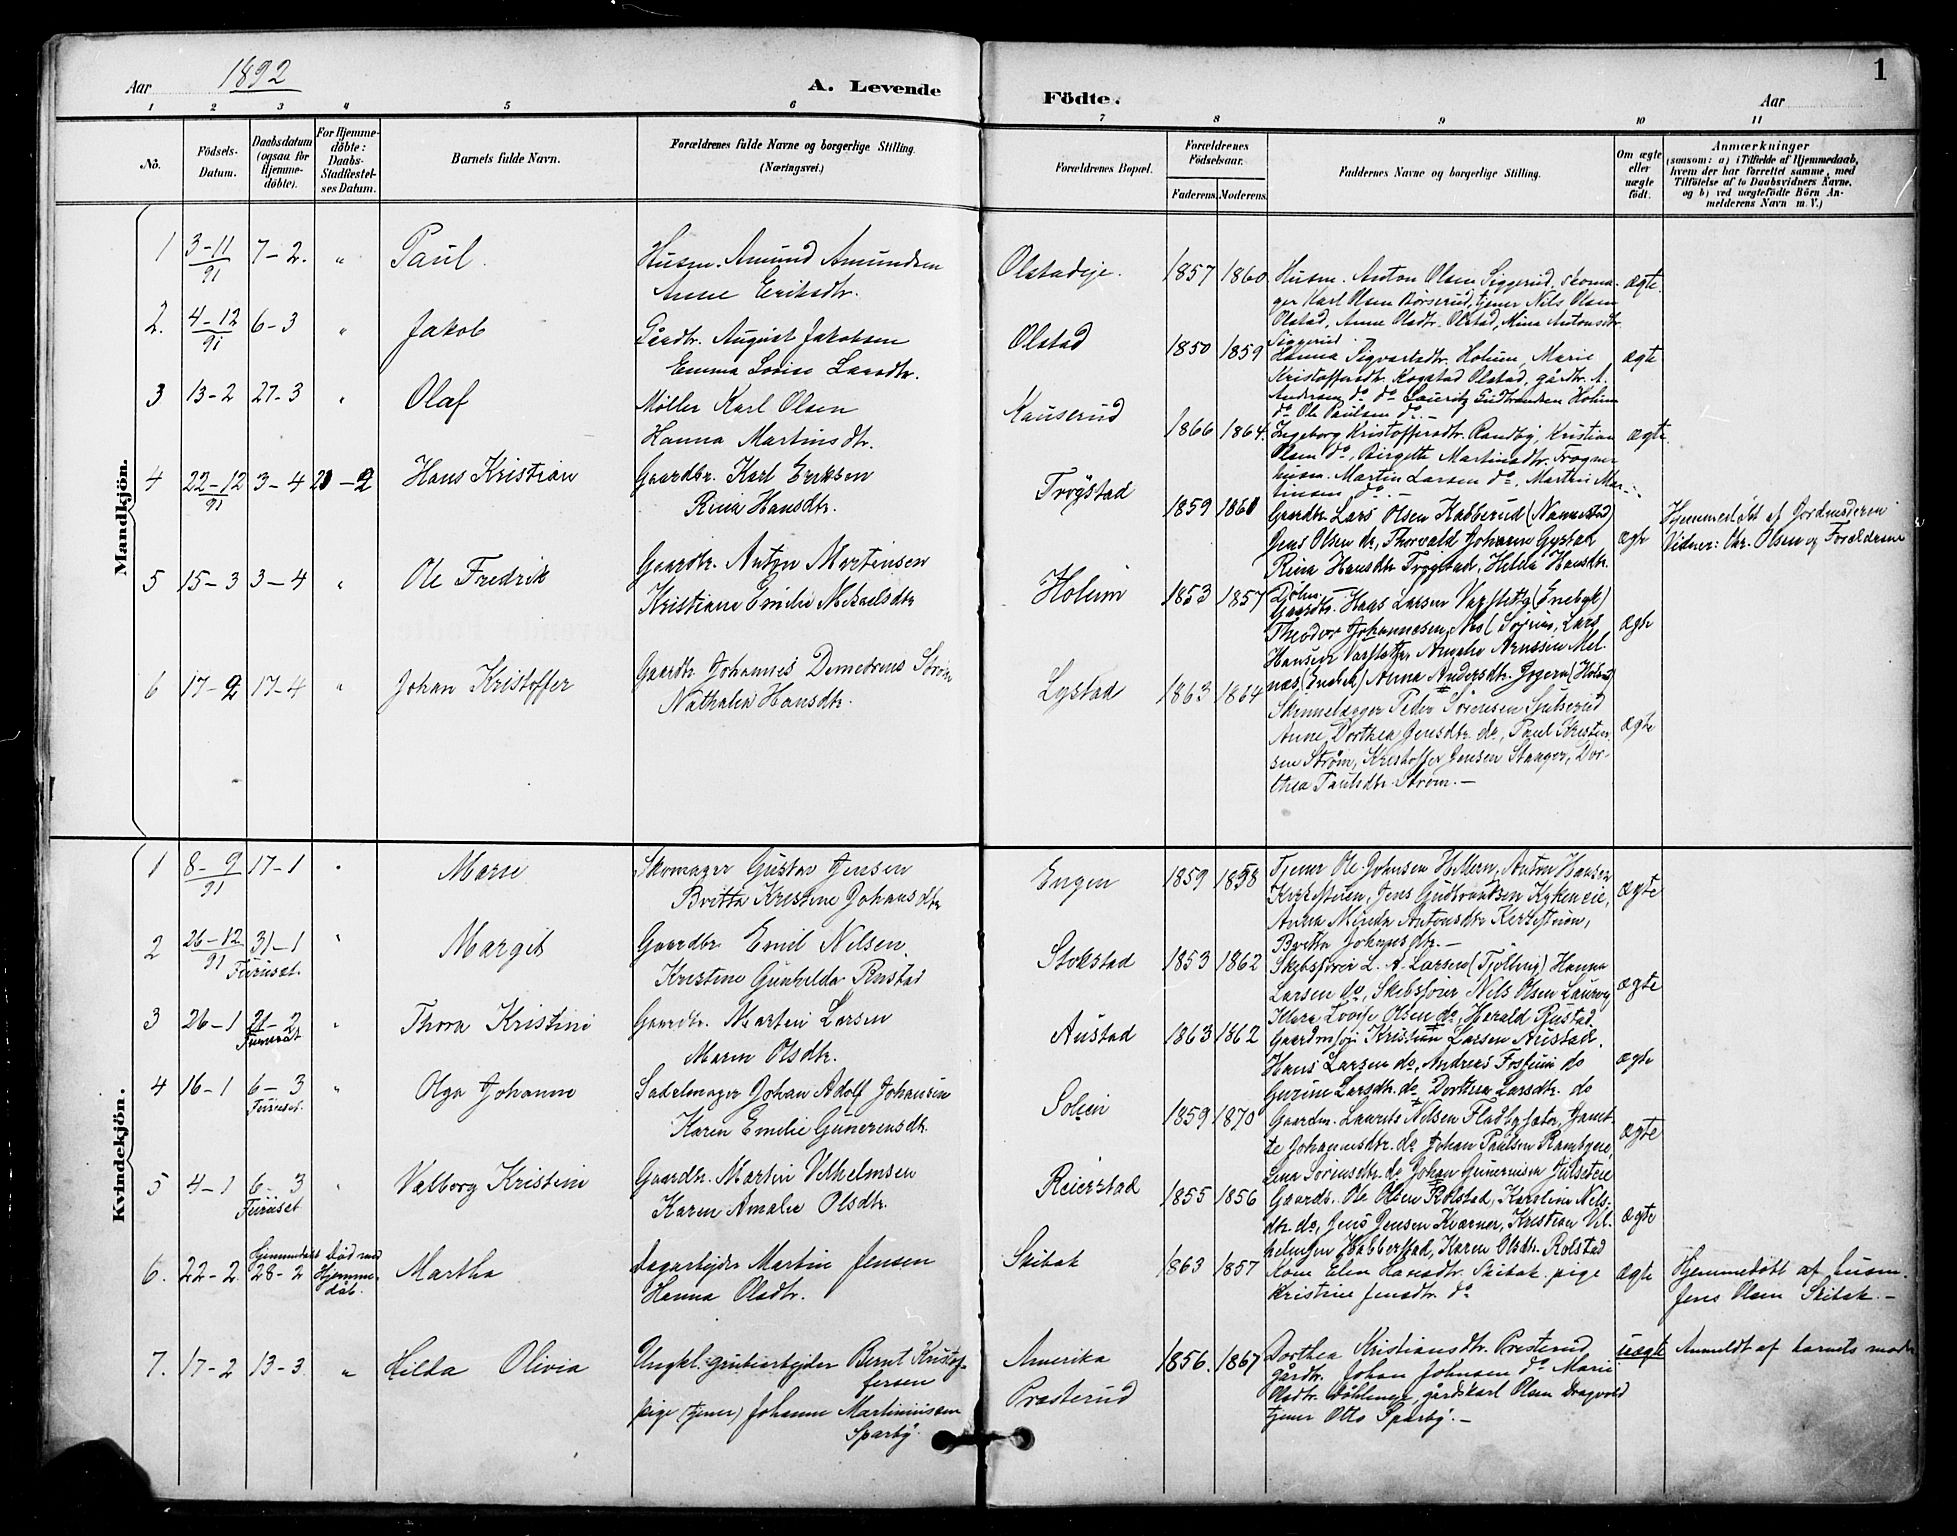 Aar 1892
A. Levende
Födte.
Aar
1
1 2 3 4 5 6 7 8 9 10 11
Nö.
Födsels-
Datum.
Daabsdatum
(ogsaa for
Hjemme-
döbte).
For Hjemme-
döbte:
Daabs-
Stadfæstel-
ses Datum.
Barnets fulde Navn.
Forældrenes fulde Navne og borgerlige Stilling.
(Næringsvei.)
Forældrenes Bopæl.
Forældrenes
Födselsaar.
Faderens.
Moderens.
Faddernes Navne og borgerlige Stilling.
Om ægte
eller
uægte
födt.
Anmærkninger
(saasom: a) i Tilfælde af Hjemmedaab,
hvem der har forrettet samme, med
Tilföielse af to Daabsvidners Navne,
og b) ved uægtefödte Börn An-
melderens Navn m. V.)
Mandkjön.
1 3-11/91 7-2. " Paul. Husm. Amund Amundsen
Anne Eriksdtr.
Olstadeje. 1857 1860 Husm. Anton Olsen Siggerud, skoma-
ger Karl Olsen Börserud, tjener Nils Olsen
Olstad, Anne Olsdtr. Olstad, Mina Antonsdtr.
Siggerud
ægte.
2. 4-12/91 6-3 " Jakob Gårdbr. August Jakobsen
Emma Lovise Larsdtr.
Olstad 1850 1859 Hanna Sigvartsdtr. Holum, Marie
Kristoffersdtr. Kogstad Olstad, gårdbr. A.
Andersen do do Lauritz Gudbrandsen Holum
do Ole Paulsen do.-
ægte
3 13-2 27-3 " Olaf Møller Karl Olsen
Hanna Martinsdtr.
Kauserud 1866 1864. Ingeborg Kristoffersdtr. Randby, Kristian
Olsen do, Birgitte Martinsdtr. Frogner
husm. Martin Larsen do, Martin Mar-
tinsen do.-
ægte.
4 22-12/91 3-4 20-2 Hans Kristian Gaardbr. Karl Eriksen
Rina Hansdtr.
Trøgstad 1859 1861 Gaardbr. Lars Olsen Kabberud (Nannestad)
Jens Olsen do, Thorvald Johansen Gystad
Rina Hansdtr Trøgstad, Helda Hansdtr.
ægte
Hjemmedöbt af Jordmoderen
Vidner: Chr. Olsen og Forældrene
5 15-3 3-4 " Ole Fredrik Gaardbr. Anton Martinsen
Kristiane Emilie Mikaelsdtr
Holum 1853 1857 Gaardbr. Hans Larsen (Enebak)
Theodor Johannesen Lars
Hansen
Anna Andersdtr.
ægte
6 17-2 17-4 " Johan Kristoffer Gaardbr Johannes Strøm
Nathalia Hansdtr.
Lystad 1863 1864 Peder Sørensen
Anne Dorthea Jensdtr do, Paul Kristen
sen Strøm, Kristoffer Jensen Stanger, Dor-
thea Paulsdtr. Strøm.-
ægte
Kvindekjön.
1 8-9/91 17-1 " Marie Skomager Gustav Jensen
Britta Kristine Johansdtr
Engen 1859 1858 Tjener Ole Johnsen Hellern, Anton Hansen
Jens Gudbrandsen
Anna Antonsdtr
Britta Johansdtr.-
ægte
2 26-12/91 31-1
Furuset. " Margit Gaardbr Emil Nilsen.
Kristine Gunhilda Rustad
Stokstad 1853 1862 Skibsfører L. A. Larsen (Tjølling) Hanna
Larsen do, Skibsfører Nils Olsen Laurvig
Lovise Olsen do, Harald Rustad.
ægte
3 26-1 21-2
Furuset " Thora Kristine Gaardbr. Martin Larsen
Maren Olsdtr.
Austad 1863 1862 Kristian Larsen Austad.
Hans Larsen do, Andreas Fosjum do
Gurine Larsdtr. do Dorthea Larsdtr. do
ægte
4 16-1 6-3
Furuset. " Olga Johanne Sadelmager Johan Adolf Johansen
Karen Emilie Gunerensdtr.
Solien 1859 1870 Gaardm. Laurits Nilsen Jonet-
te Johannesdtr. do Johan Paulsen
Lina Sørensdtr. do Johan
ægte
5 4-1 6-3
Furuset " Valborg Kristine Gaardbr. Martin Vilhelmsen
Karen Amalie Olsdtr.
Reierstad 1855 1856 Gaardbr. Ole Olsen Rolstad, Karoline Nils-
dtr. do, Jens Jensen Kværner, Kristian Vil-
helmsen Habberstad, Karen Olsdtr. Rolstad
ægte
6. 22-2. Hjemmedöbt
28-2 Död med
Hjemme-
dåb. Martha Dagarbejder Martin Jensen
Hanna Olsdtr.
Skibak 1863 1857 Kone Elen Hansdtr. Skibak. pige
Kristine Jensdtr. do
ægte
Hjemmedöbt af husm.
Jens Olsen Skibak.-
7. 17-2 13-3 " Hilda Olivia Ungkl. grubearbejder Bernt Kristof-
fersen
pige (tjener) Johanne Martiniusen
Sparby.
Amerika
Præsterud
1856. 1867 Dorthea Kristiansdtr. Presterud
gårdbr. Johan Johnsen do Marie
Olsdtr. Døhleneje, gårdskarl Olsen Dragvold
tjener Otto Sparby.-
uægte
Anmeldt af barnets moder